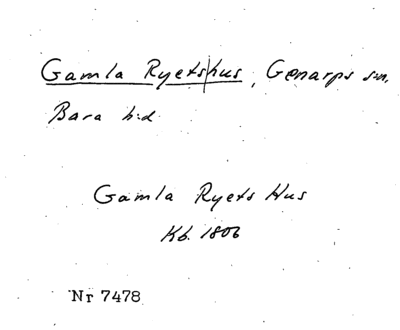 Gamla Ryets|hus, Genarps s:n,
Bara h:d
Gamla Ryets Hus
Kb. 1806
Nr 7478